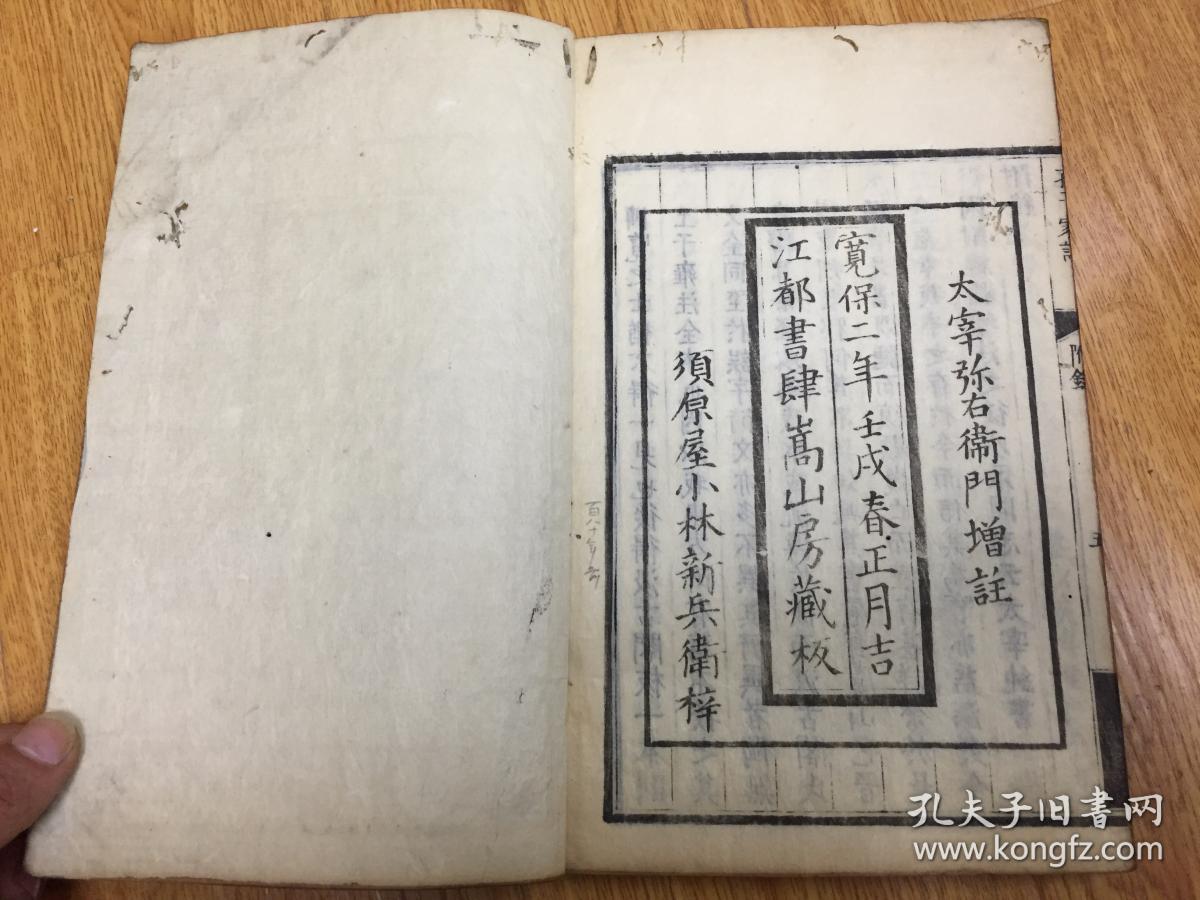 太宰弥右衞門增註
寬保二年壬戌春正月吉
江都書肆嵩山房藏板
須原屋小林新兵衛梓
附錄
五
孔夫子旧书网
www.kongfz.com